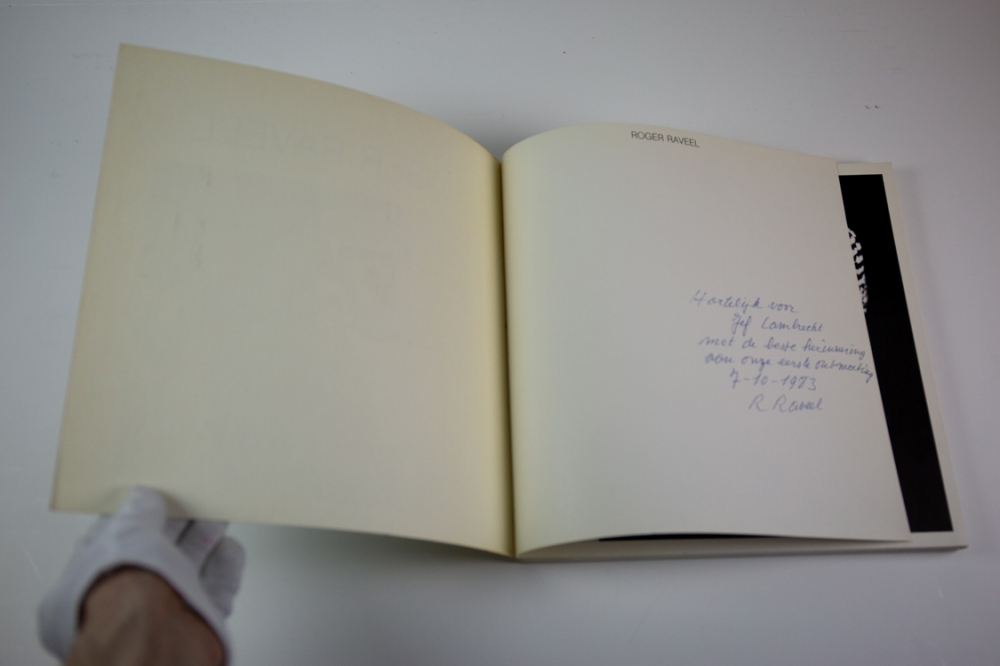 ROGER RAVEEL
Hartelijk voor
Jef Lambrecht
met de beste herinnering
aan onze eerste ontmoeting
7-10-1983
R Raveel